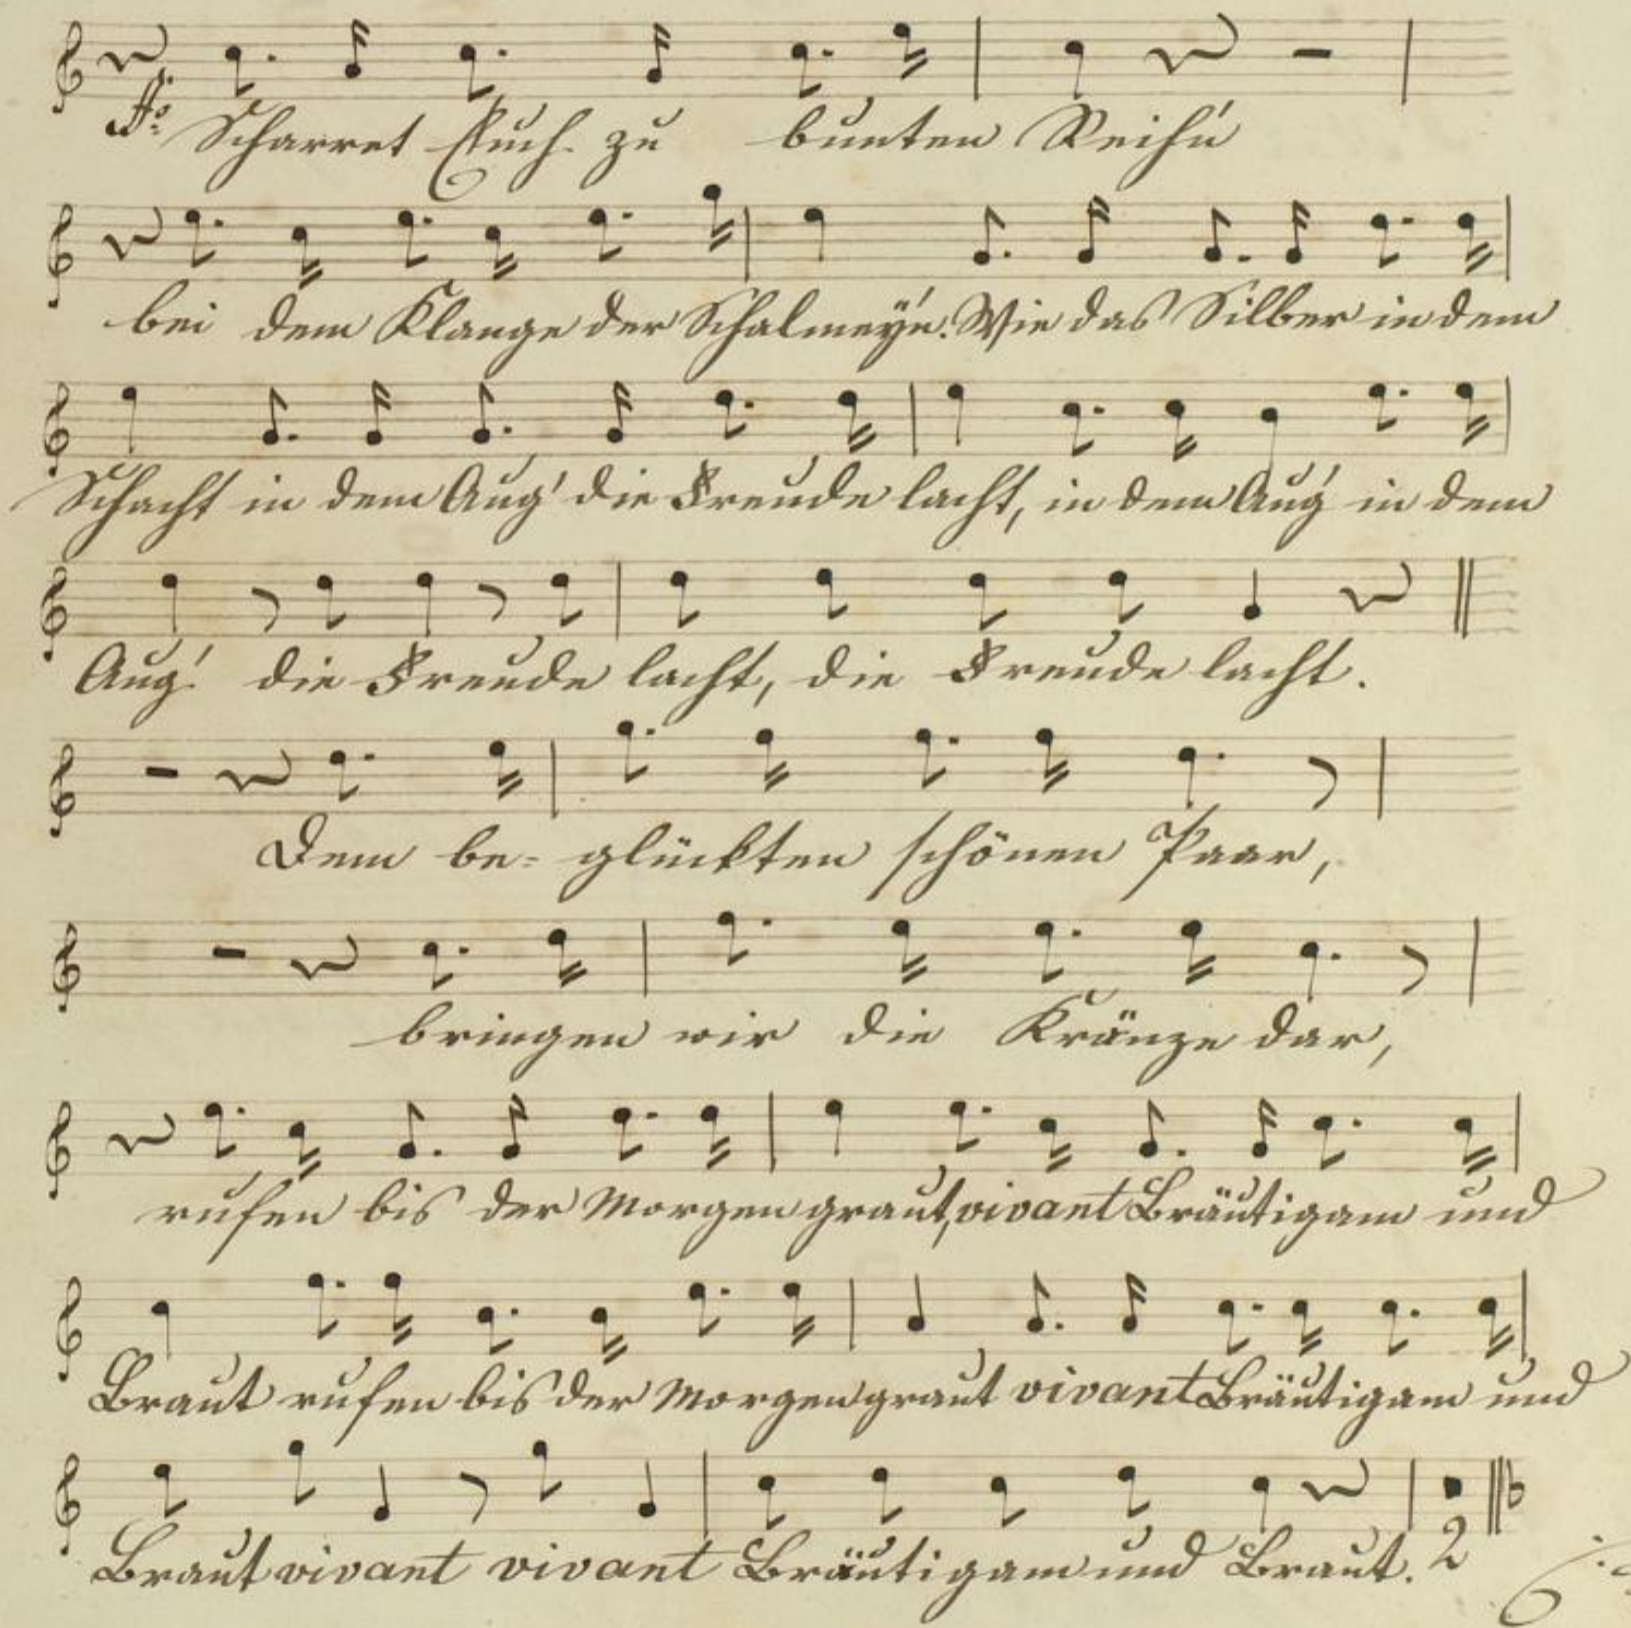 fo: Scharret Euch zu bunten Reih'n
bei dem Klange der Schalmey'n. Wie das Silber in dem
Schacht in dem Aug' die Freude lacht, in dem Aug' in dem
Aug' die Freude lacht, die Freude lacht.
Dem be= glückten schönen Paar,
bringen wir die Kränze dar,
rufen bis der Morgen graut, vivant Bräutigam und
Braut rufen bis der Morgen graut vivant Bräutigam und
Braut vivant vivant Bräutigam und Braut. 2